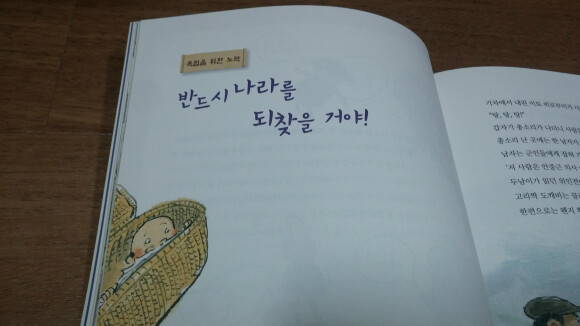 독립을 위한 노력
반드시 나라를
되찾을 거야!
기차에서 내린 이토 히로부미가
"탕, 탕, 탕!"
갑자기 총소리가 나더니 사람들
총소리 난 곳에는 한 남자가
남자는 군인들에게 잡혀
'저 사람은 안중근 의사
두남이가 읽던 위인전
고리짝 도깨비는
한편으로는 왠지